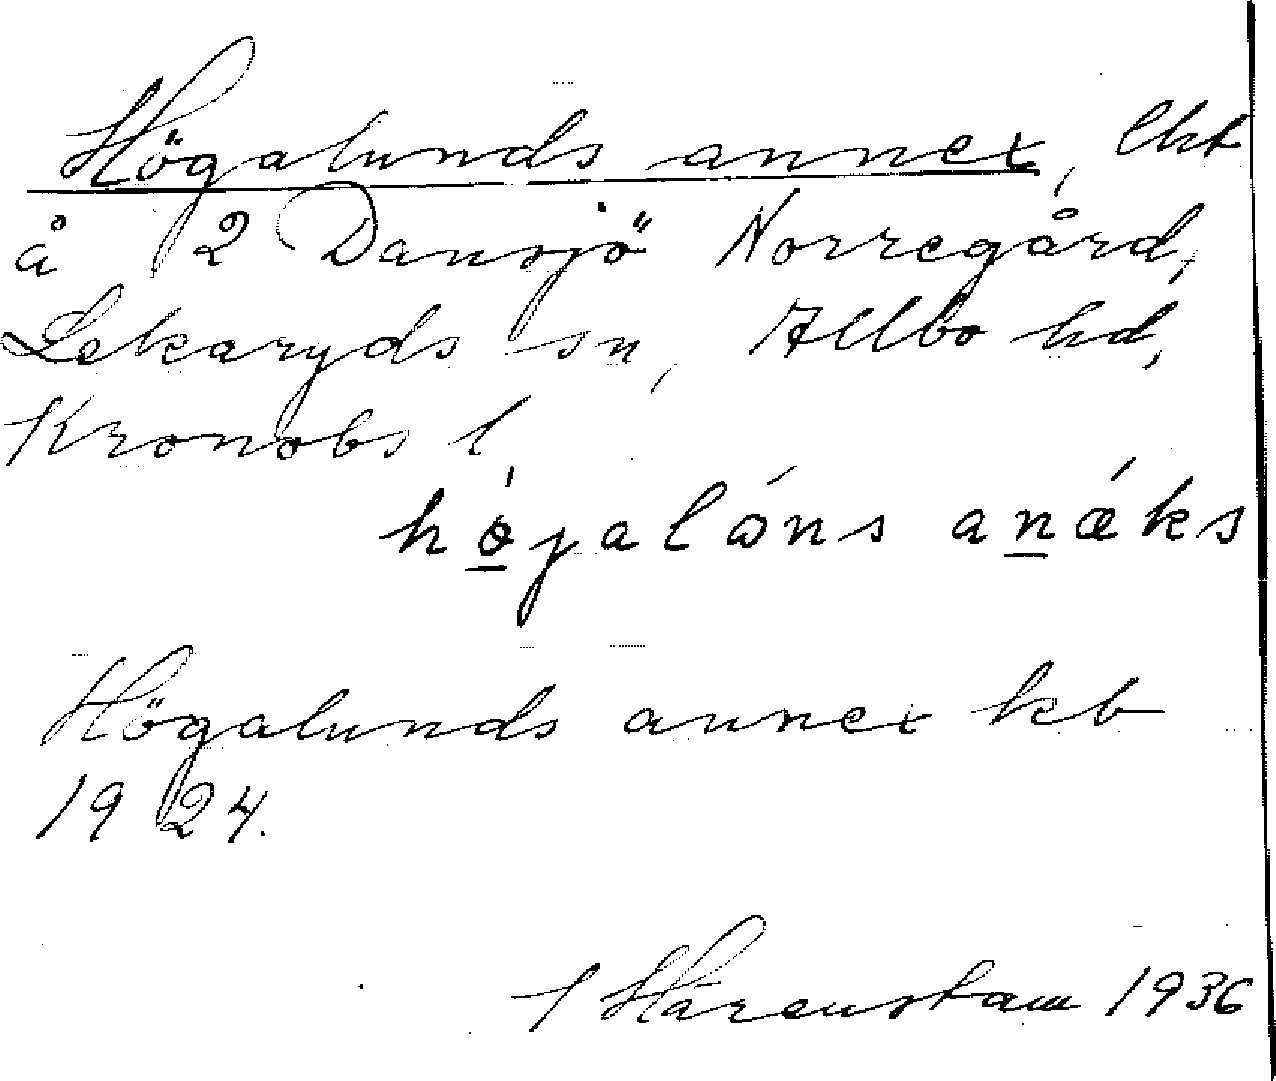 Högalunds annex, lht
å 2 Dansjö Norregård,
Lekaryds sn, Allbo hd,
Kronobs l
högalóns anǽks
Högalunds annex kb
1924.
I Härenstam 1936